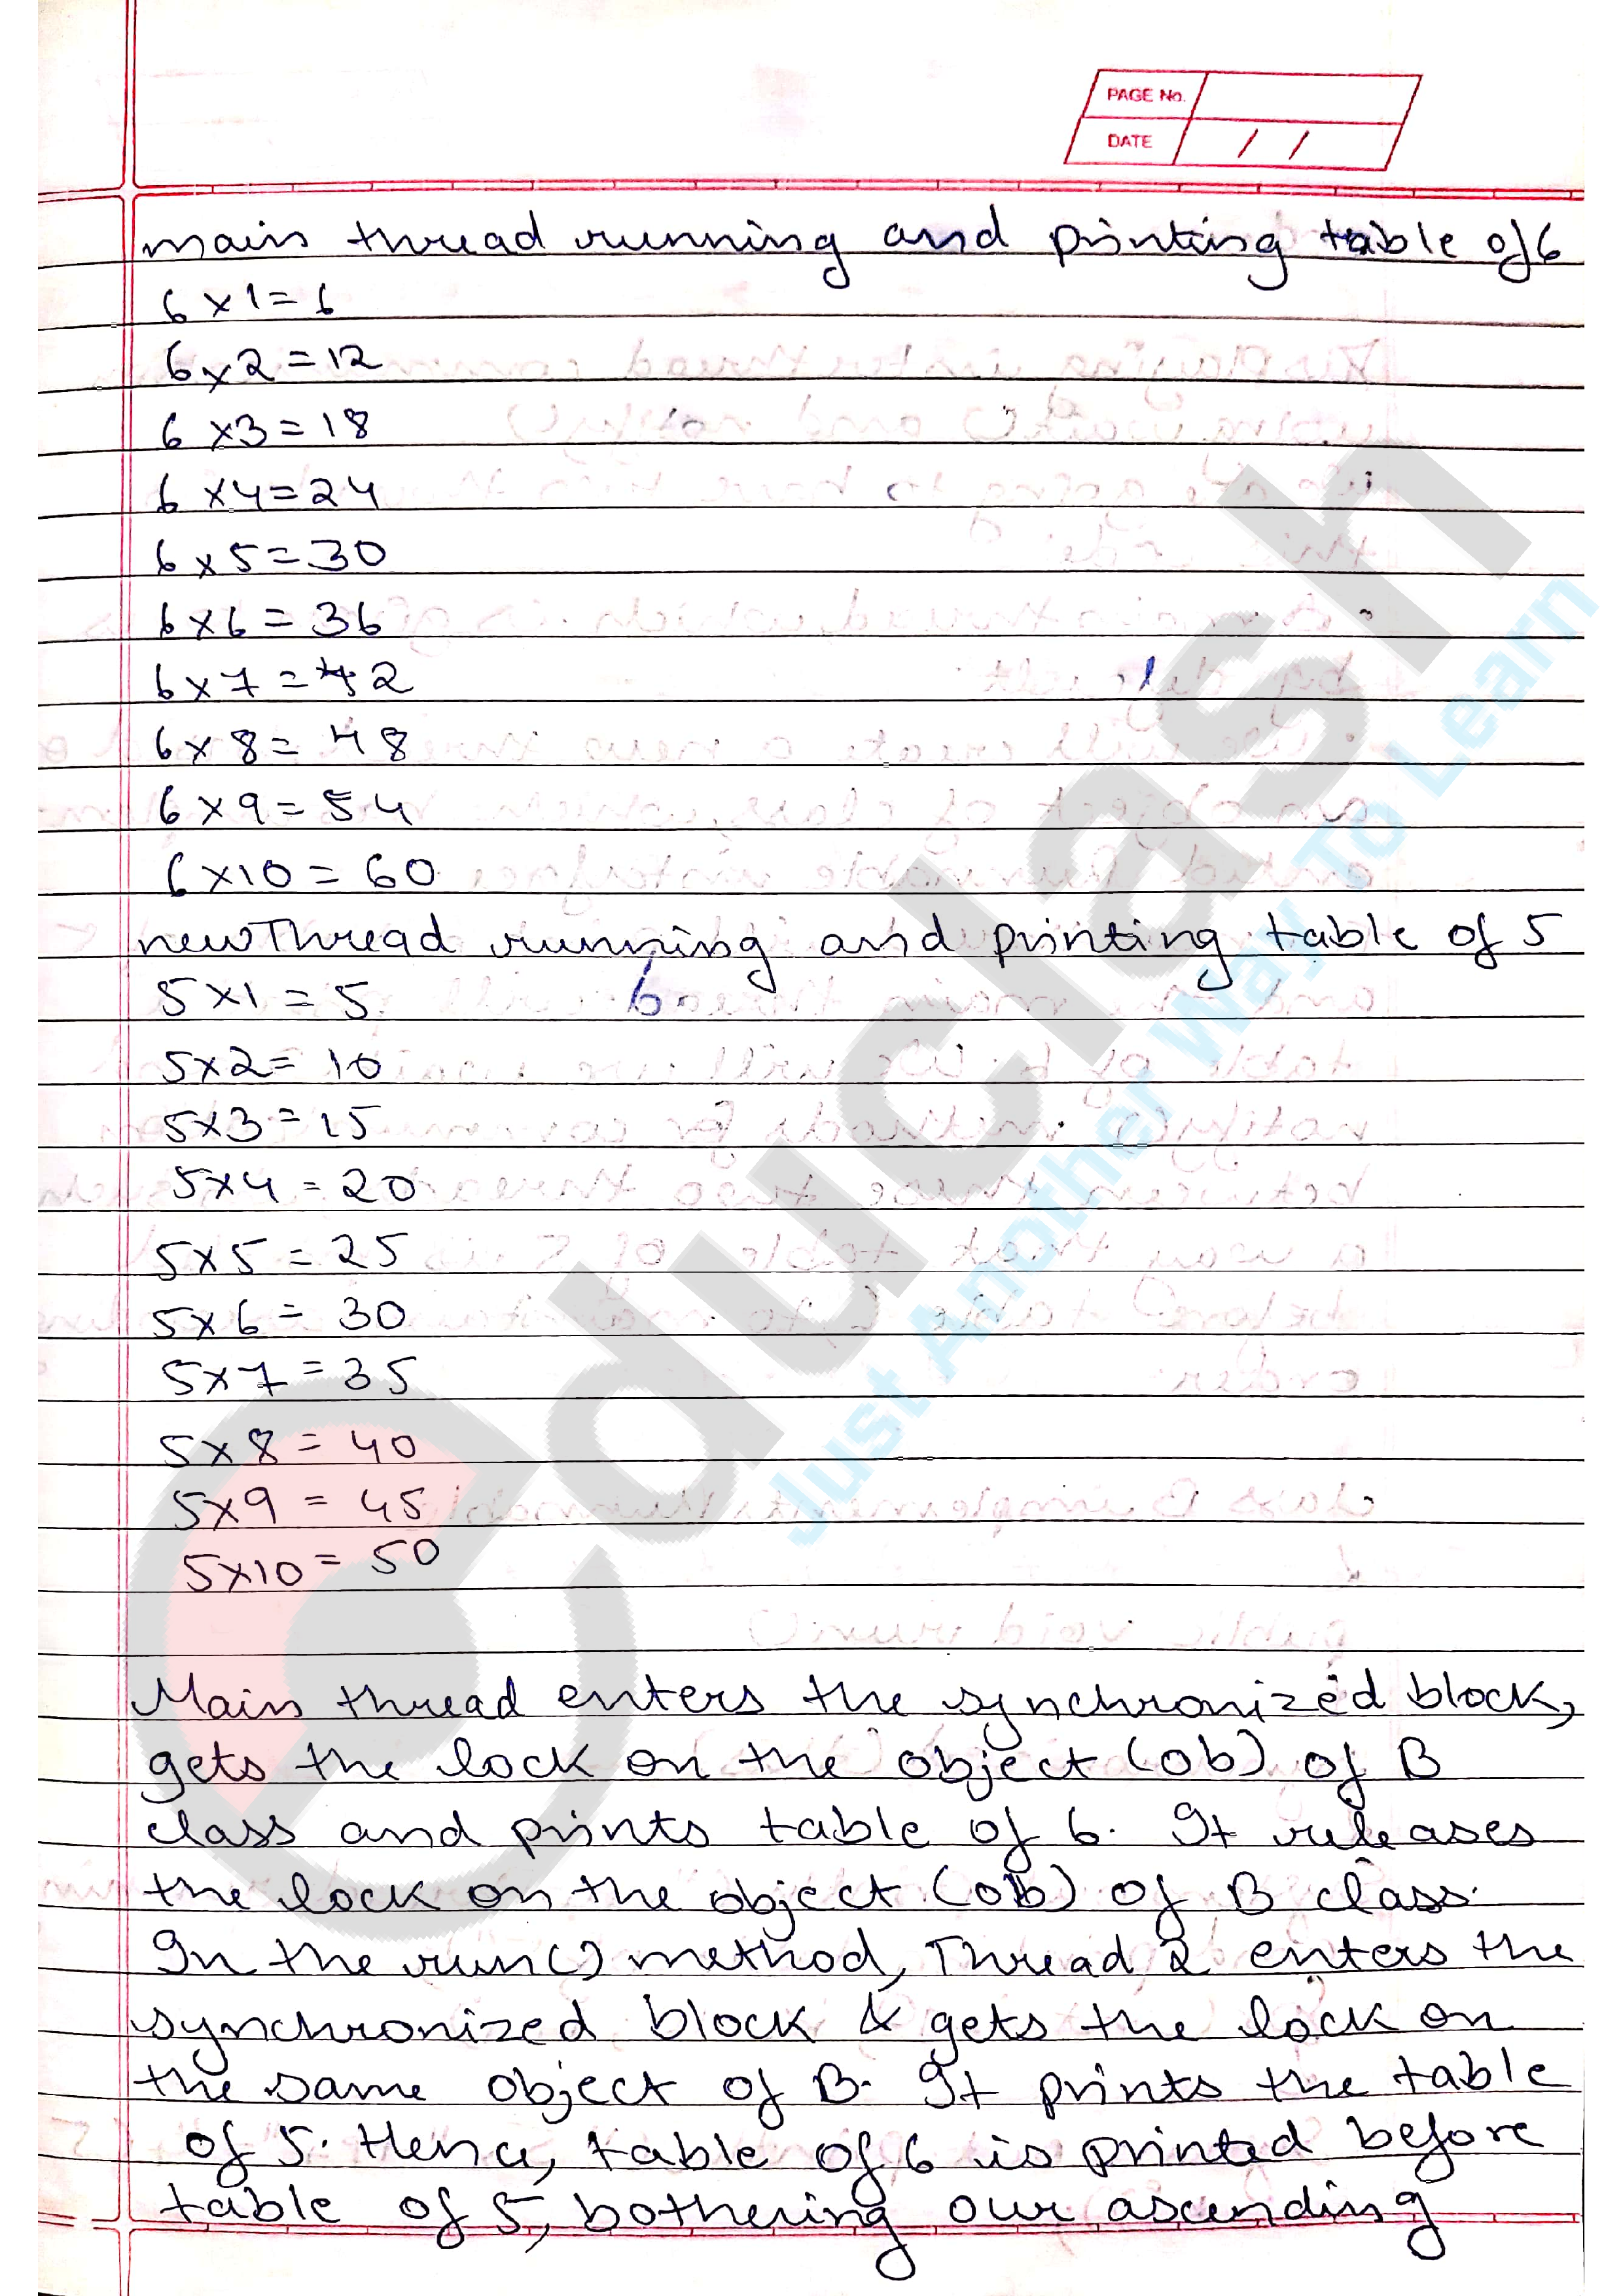 PAGE No.
DATE / /
main thread running and printing table of 6
6 x 1 = 6
6 x 2 = 12
6 x 3 = 18
6 x 4 = 24
6 x 5 = 30
6 x 6 = 36
6 x 7 = 42
6 x 8 = 48
6 x 9 = 54
6 x 10 = 60
newThread running and printing table of 5
5 x 1 = 5
5 x 2 = 10
5 x 3 = 15
5 x 4 = 20
5 x 5 = 25
5 x 6 = 30
5 x 7 = 35
5 x 8 = 40
5 x 9 = 45
5 x 10 = 50
Main thread enters the synchronized block,
gets the lock on the object (ob) of B
class and prints table of 6. It releases
the lock on the object (ob) of B class.
In the run() method, Thread 2 enters the
synchronized block & gets the lock on
the same object of B. It prints the table
of 5. Hence, table of 6 is printed before
table of 5, bothering our ascending
educlash
Just Another Way To Learn